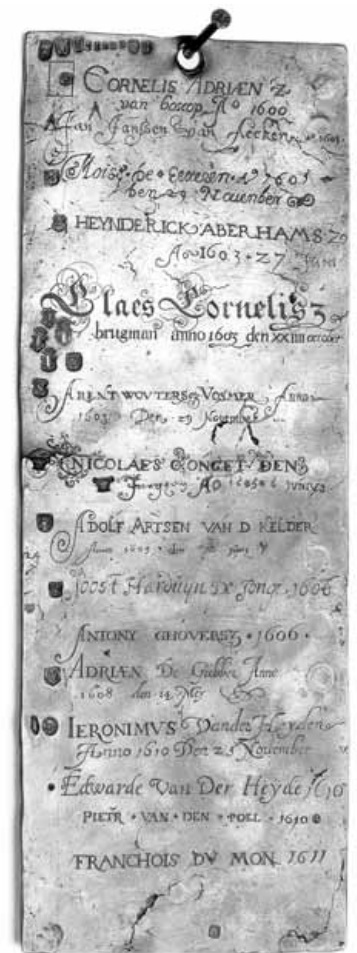 CORNELIS ADRIÆN'Z
van boscop Aº 1600
Jan Janssen Van
Aº 1601
den 29 November
HEYNDERICK ABERHAMS Zo
Aº 1603 · 27 Juni
Claes Cornelisz
brugman anno 1603 den XXIIII october
ARENT WOUTERSZ VOSMER, Anno
1603 Den 29 November
NICOLAES CONGET DEN
Aº 1605
ADOLF ARTSEN VAN D KELDER
Anno 1605 den
Joost Harduyn De Jonge 1606
ANTONY GHOVERSZ · 1606 ·
ADRIÆN De Anno
1608 den 14 Mey
IERONIMVS Vander Heyden
Anno 1610 Den 25 November
Edwarde Van Der Heyde 1610
PIETR · VAN · DEN · POEL · 1610
FRANCHOIS DV MON 1611